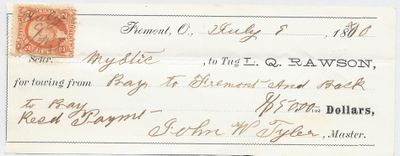 Fremont, O., July 9 1870
Schr. Mystic, to Tug L. Q. RAWSON,
for towing from Bay to Fremont And Back
to Bay $50.00 Dollars,
Recd Paymt
John W Tyler, Master.